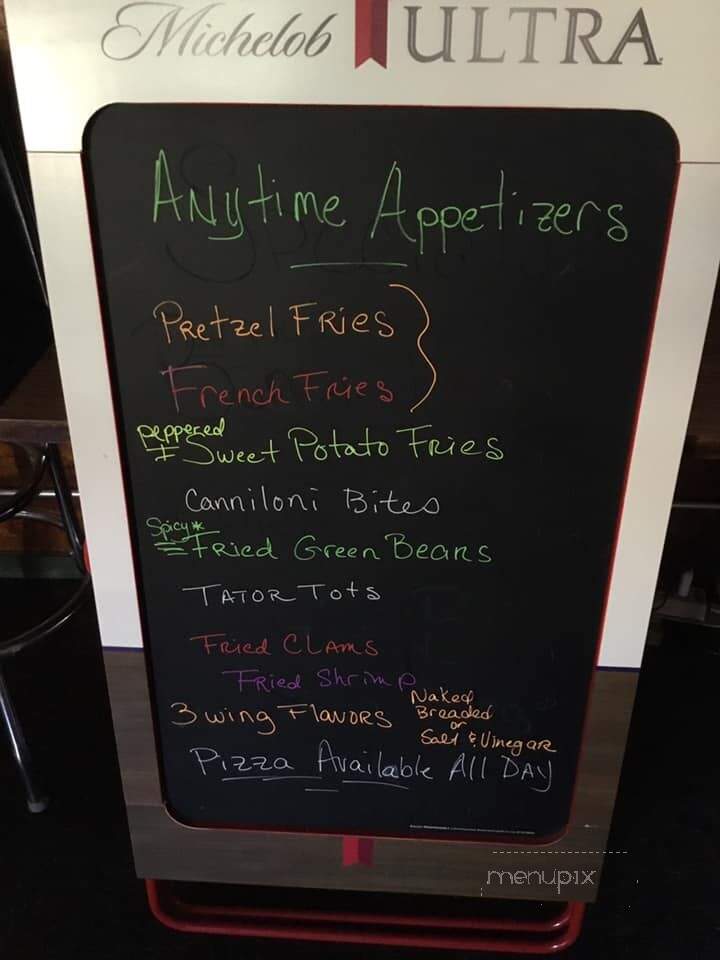 Michelob ULTRA
Anytime Appetizers
Pretzel Fries
French Fries
peppered
Sweet Potato Fries
Canniloni Bites
Spicy*
Fried Green Beans
Tator Tots
Fried Clams
Fried Shrimp
3 wing Flavors
Naked
Breaded
or
Salt & Vinegar
Pizza Available All Day
menupix